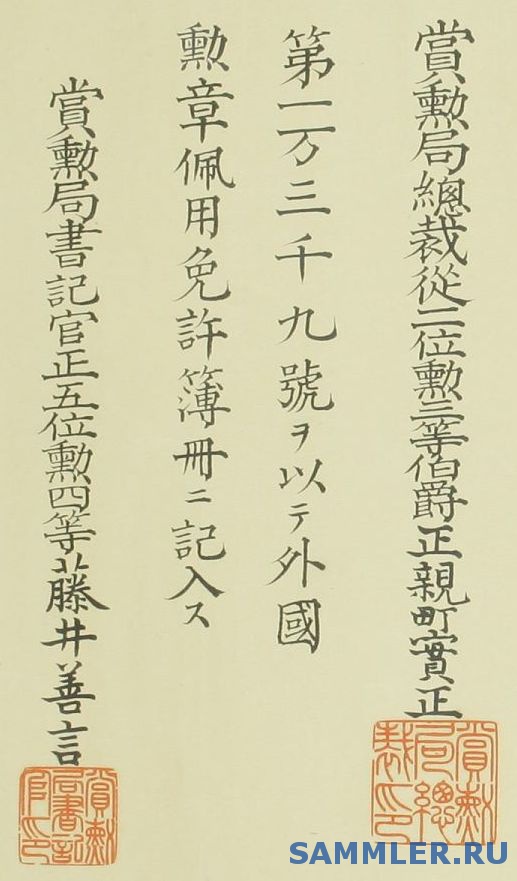 賞勲局總裁從二位勲三等伯爵正親町實正
第一万三千九號ヲ以テ外國
勲章佩用免許簿冊ニ記入ス
賞勲局書記官正五位勲四等藤井善言
賞勲
局總
裁印
賞勲
局書記
官印
SAMMLER.RU